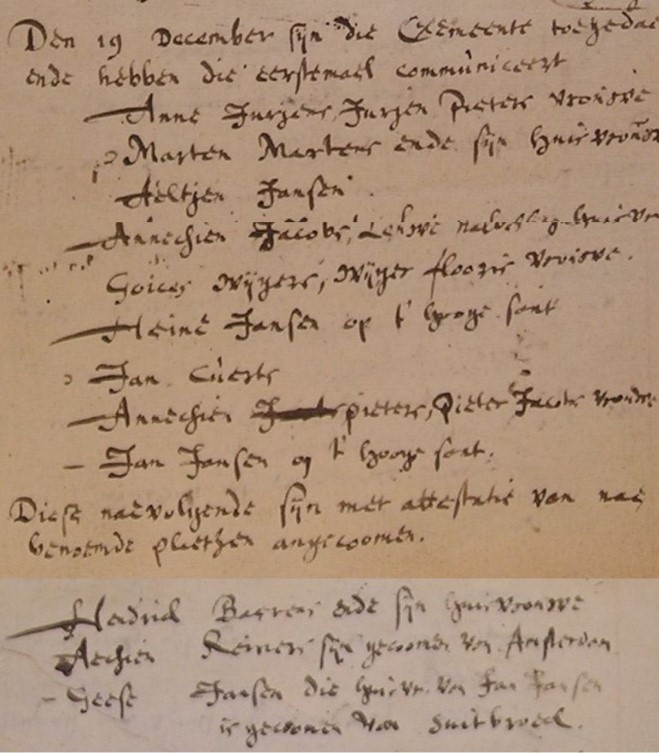 Den 19 December sijn die Gemeente toegedae
ende hebben die eerstemael communiceert
Anne Jurjens, Jurjen Pieters vrouwe
Marten Martens ende sijn huisvrouw
Aeltjen Jansen
Annechien Jacobs, huisvr
Wijgers, Wijger Flooris vrouwe.
Heine Jansen op t' hooge sant
Jan Cuerts
Annechien Pieters, Pieter Jacobs vrouwe
Jan Jansen op t' hooge sant.
Diese naevolgende sijn met attestatie van nae
benoemde plaethzen angecoomen.
Hendrick ende sijn huisvrouwe
Aechien Reiners sijn gecoomen van Amsterdam
Geese Jansen die huisvr. van Jan Jansen
is gecoomen van Suitbroeck.